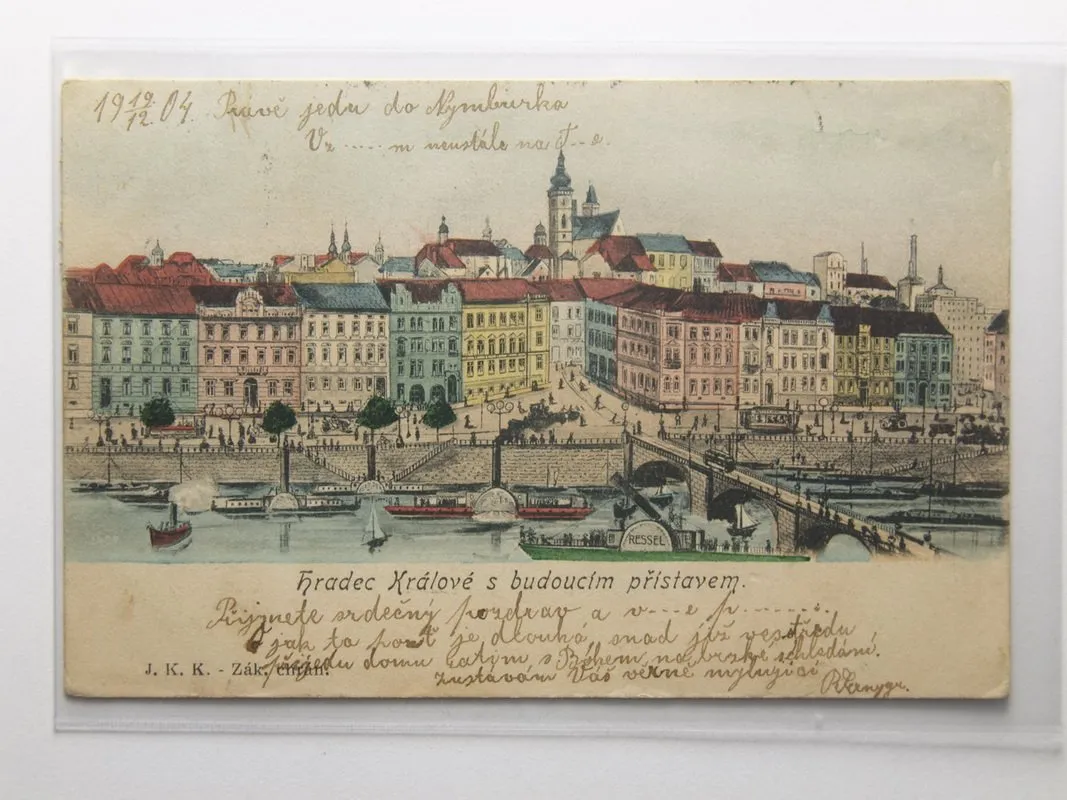 19 19/12. 04. Pravě jedu do Nymburka
Vz.....m neustále na T..e.
RESSEL
Hradec Králové s budoucím přístavem.
Přijmete srdečný pozdrav a v---e p.......:
jak ta pouť je dlouhá, snad již ve středu
přijedu domu zatím s Bohem na brzké schledání.
J. K. K. - Zák. chrán.
zustávám Váš věrně milující